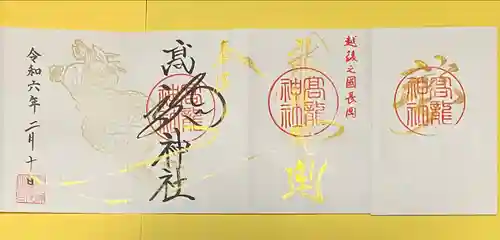 越後之國長岡
高龍神社
高龍神社
高龍神社
髙龍神社
令和六年 二月十日